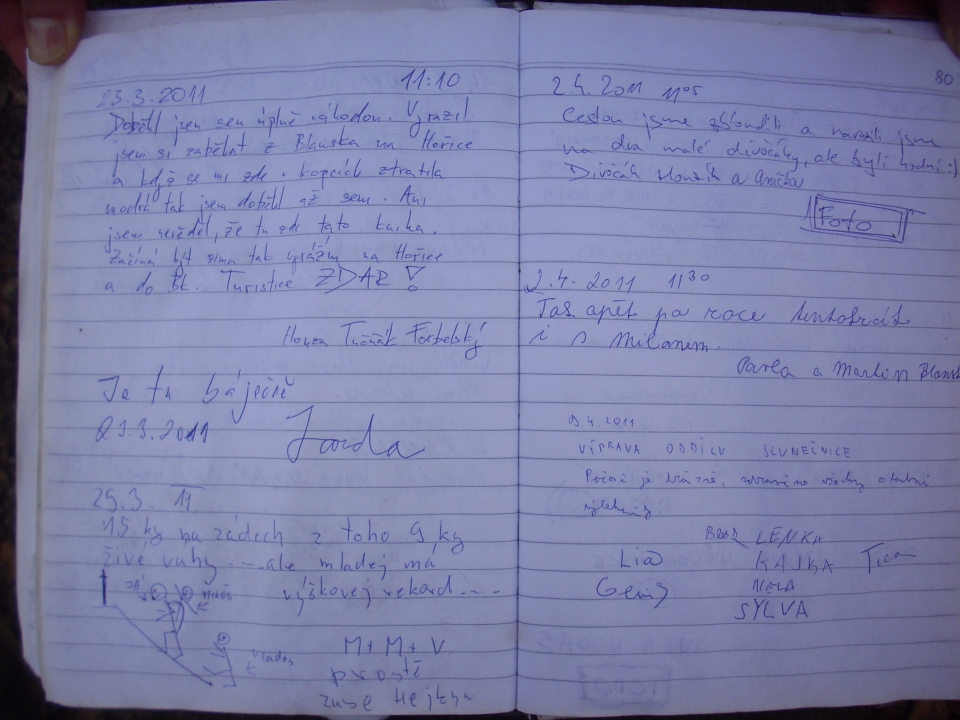 23.3.2011 11:10
Doběhl jsem sem úplně náhodou. Vyrazil
jsem si zaběhat z Blanska na Hořice
a když se mi zde v kopcích ztratila
modrá tak jsem doběhl až sem. Ani
jsem nevěděl, že tu je tato kniha.
Začíná být zima tak vyrážím na Hořice
a do Bk. Turistice ZDAR!
Honza Tučňák
Je tu báječně
2011
Jarda
29.3. 11
15 kg na zádech z toho 9 kg
živé váhy....ale mladej má
výškovej rekord....
JÁ
Vlados
M+M+V
prostě
zase Hejtyn
80
2.4.2011 11⁰⁵
Cestou jsme zbloudili a narazili jsme
na dva malé divočáky, ale byli hodní :)
Divočák Honzík a Anička
FOTO
2.4. 2011 11³⁰
Tak opět po roce tentokrát
i s Milanem.
Pavla a Martin
9.4.2011
VÝPRAVA ODDÍLU SLUNEČNICE
Počasí je krásné, zdravíme všechny ostatní
výletníky
LENKA
Lia KAJKA Tica
NELA
SYLVA